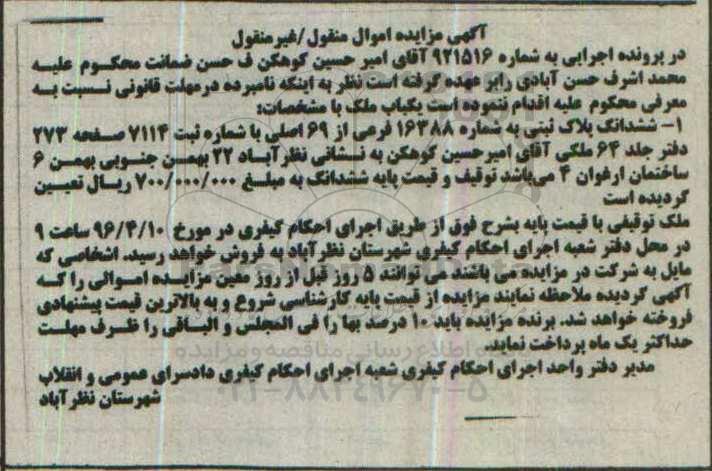 آگهی مزایده اموال منقول/غیرمنقول
در پرونده اجرایی به شماره ۹۲۱۵۱۶ آقای امیر حسین کوهکن ف حسن ضمانت محکوم علیه
محمد اشرف حسن آبادی رابر عهده گرفته است نظر به اینکه نامبرده درمهلت قانونی نسبت به
معرفی محکوم علیه اقدام ننموده است یکباب ملک با مشخصات:
۱- ششدانگ پلاک ثبتی به شماره ۱۶۳۸۸ فرعی از ۶۹ اصلی با شماره ثبت ۷۱۱۴ صفحه ۲۷۳
دفتر جلد ۶۴ ملکی آقای امیرحسین کوهکن به نشانی نظرآباد ۲۲ بهمن جنوبی بهمن ۶
ساختمان ارغوان ۴ می‌باشد توقیف و قیمت پایه ششدانگ به مبلغ ۷۰۰/۰۰۰/۰۰۰ ریال تعیین
گردیده است
ملک توقیفی با قیمت پایه بشرح فوق از طریق اجرای احکام کیفری در مورخ ۹۶/۴/۱۰ ساعت ۹
در محل دفتر شعبه اجرای احکام کیفری شهرستان نظرآباد به فروش خواهد رسید. اشخاصی که
مایل به شرکت در مزایده می باشند می توانند ۵ روز قبل از روز معین مزایده اموالی را که
آگهی گردیده ملاحظه نمایند مزایده از قیمت پایه کارشناسی شروع و به بالاترین قیمت پیشنهادی
فروخته خواهد شد. برنده مزایده باید ۱۰ درصد بها را فی المجلس و الباقی را ظرف مهلت
حداکثر یک ماه پرداخت نماید.
اطلاع رسانی مناقصه و مزایده
مدیر دفتر واحد اجرای احکام کیفری شعبه اجرای احکام کیفری دادسرای عمومی و انقلاب
شهرستان نظرآباد
۰۲۱-۸۸۳۴۹۶۷۰-۵